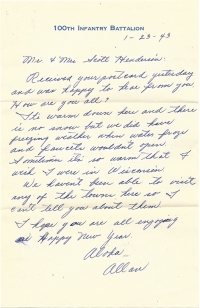 100TH INFANTRY BATTALION
1-23-43
Mr & Mrs Scott Henderson:
Received your postcard yesterday
and was happy to hear from you
How are you all?
Its warm down here and there
is no snow but we did have
freezing weather when water froze
and faucets wouldn't open
Sometimes its so warm that I
wish I were in Wisconsin
We haven't been able to visit
any of the towns here so I
can't tell you about them.
I hope you are all enjoying
a Happy New Year.
Aloha
Allan